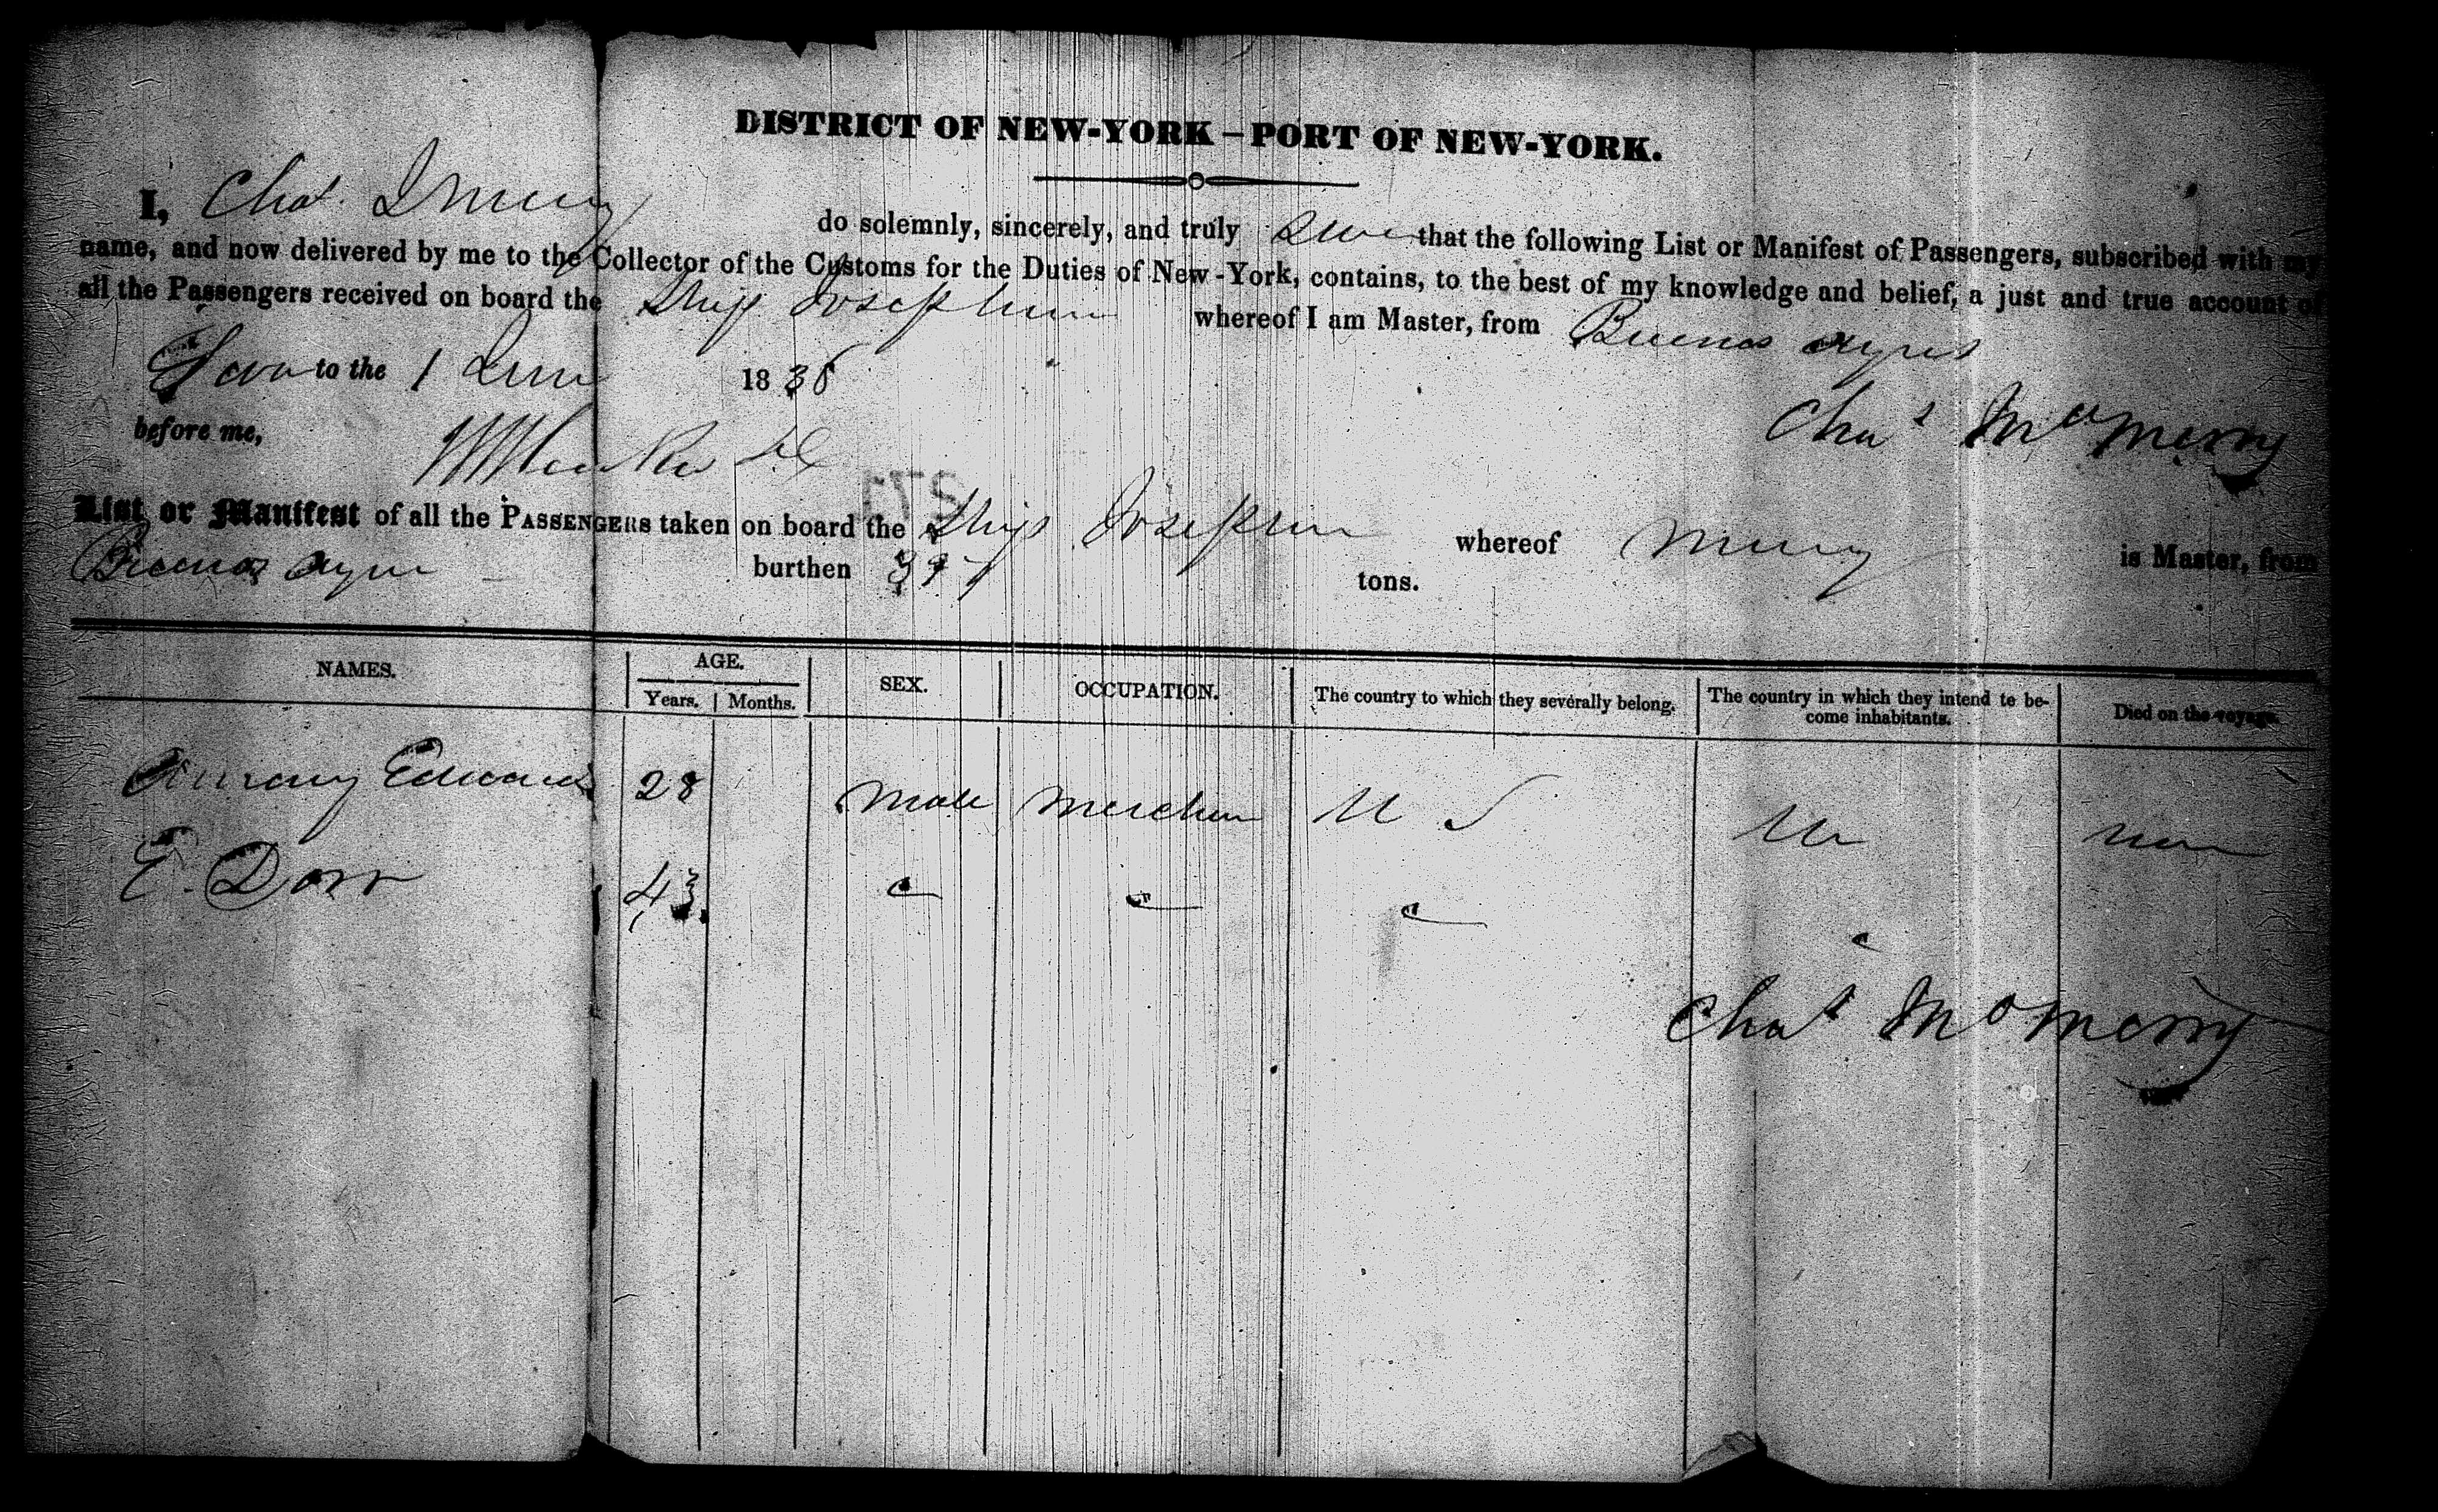 DISTRICT OF NEW-YORK — PORT OF NEW-YORK.
I, Chas.
do solemnly, sincerely, and truly that the following List or Manifest of Passengers, subscribed with my
name, and now delivered by me to the Collector of the Customs for the Duties of New-York, contains, to the best of my knowledge and belief, a just and true account of
all the Passengers received on board the Ship Josephine whereof I am Master, from Buenos Ayres
to the 1 June 1838
Chas
before me,
List or Manifest of all the PASSENGERS taken on board the Ship Josephine whereof Merry is Master, from
Buenos Ayres burthen tons.
NAMES. AGE. SEX. OCCUPATION. The country to which they severally belong. The country in which they intend te be-come inhabitants. Died on the voyage.
Years. Months.
Edwards 28 Male Merchan U S
E. Dorr 43
Chas